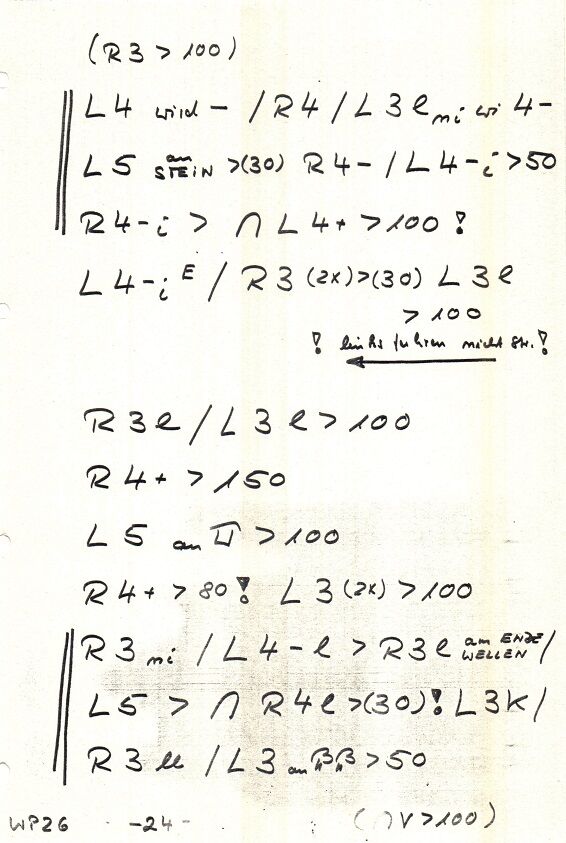 (R3 > 100)
L4 wird - / R4 / L3l mi wi 4-
L5 an STEIN >(30) R4- / L4-i >50
R4-i > ∩ L4+ >100 !
L4-i E / R3 (2x)>(30) L3l
> 100
! links fahren nicht str. !
R3l / L3l > 100
R4+ > 150
L5 an > 100
R4+ > 80 ! L3 (2x) > 100
R3 mi / L4-l > R3l am ENDE WELLEN /
L5 > ∩ R4l >(30) ! L3K /
R3 ll / L3 an > 50
WP26 -24- (∩ V > 100)